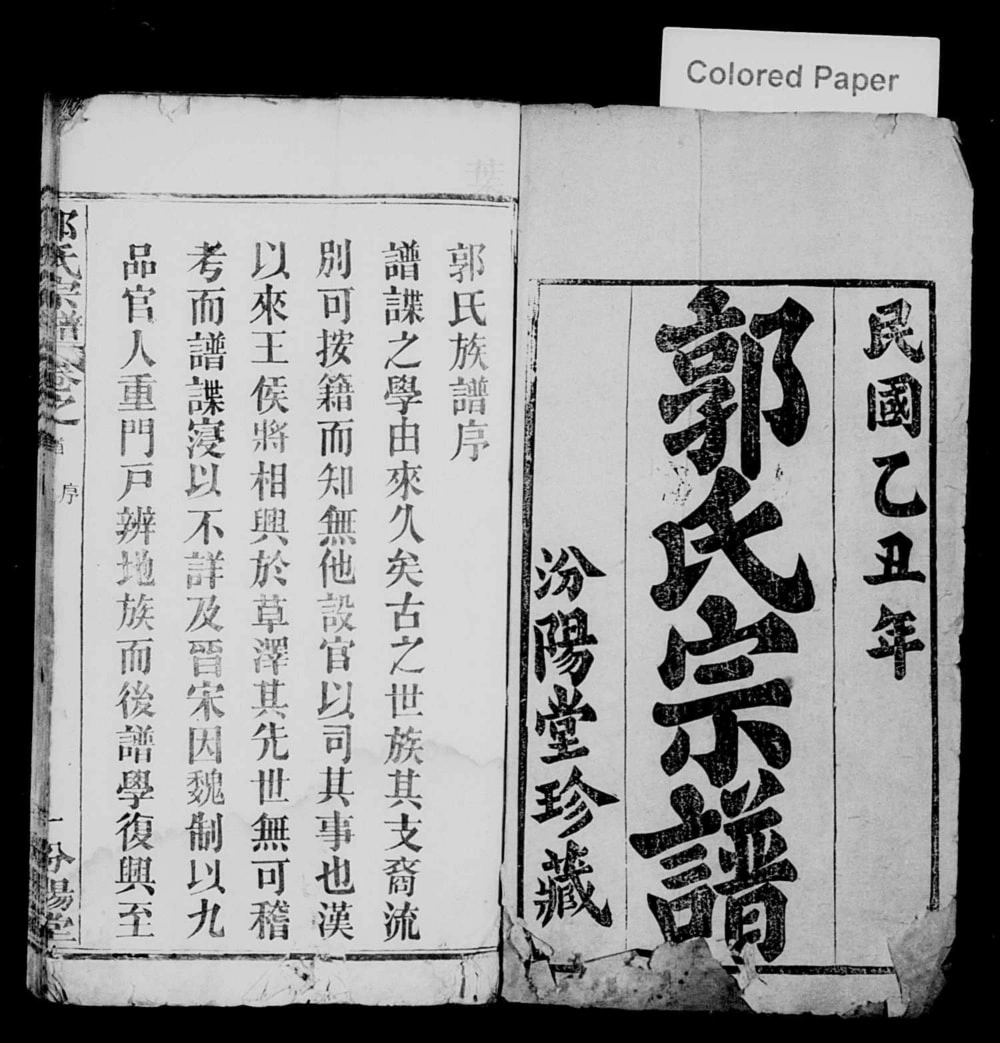 Colored Paper
民國乙丑年
郭氏宗譜
汾陽堂珍藏
郭氏族譜序
譜諜之學由來久矣古之世族其支裔流
別可按籍而知無他設官以司其事也漢
以來王侯將相興於草澤其先世無可稽
考而譜諜寖以不詳及晉宋因魏制以九
品官人重門戸辨地族而後譜學復興至
郭氏宗譜
卷之首
序
一
汾陽堂